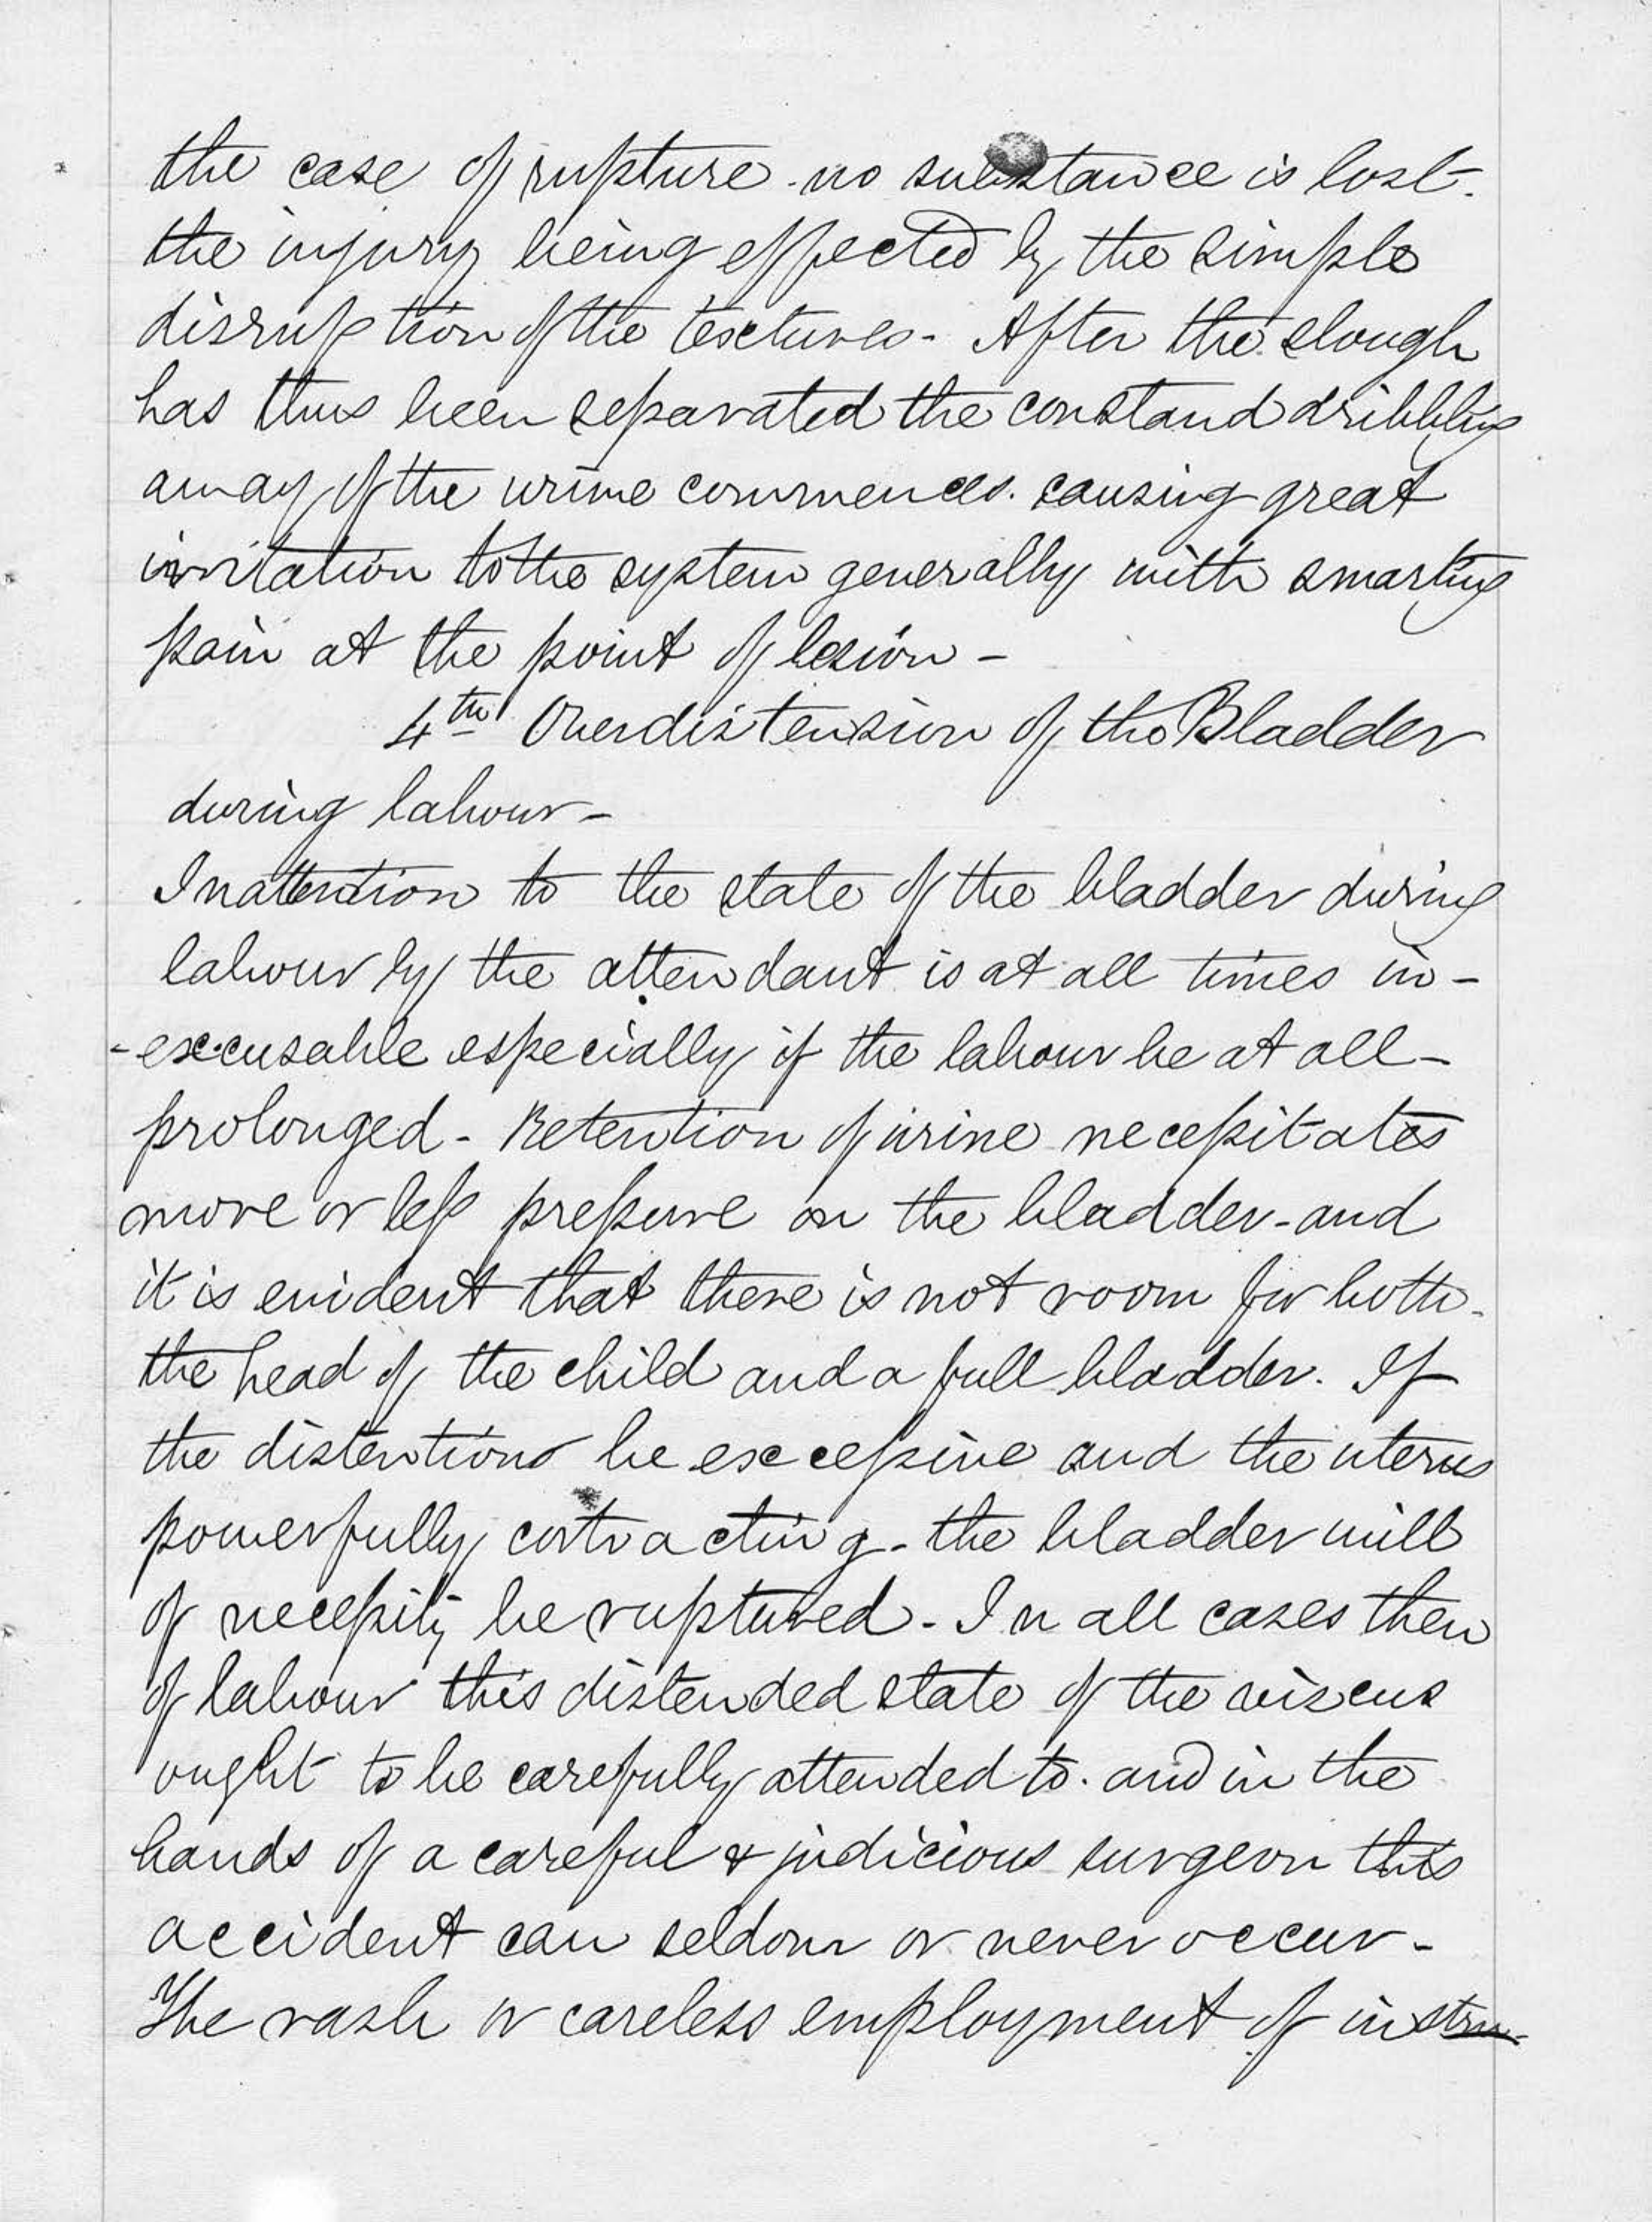 the case of rupture - no substance is lost -
the injury being effected by the simple
disruption of the textures - After the slough
has thus been separated the constand dribbling
away of the urine commences. causing great
irritation to the system generally with smarting
pain at the point of lesion -
4th Overdistension of the Bladder
during labour -
Inattention to the state of the bladder during
labour by the attendant is at all times in-
-excusable especially if the labour be at all -
prolonged - Retention of urine necessitates
more or less pressure on the bladder - and
it is evident that there is not room for both -
the head of the child and a full bladder. If
the distention be excessive and the uterus
powerfully contracting - the bladder will
of necessity be ruptured - In all cases then
of labour this distended state of the viscus
ought to be carefully attended to. and in the
hands of a careful & judicious surgeon this
accident can seldom or never occur -
The rash or careless employment of instru-